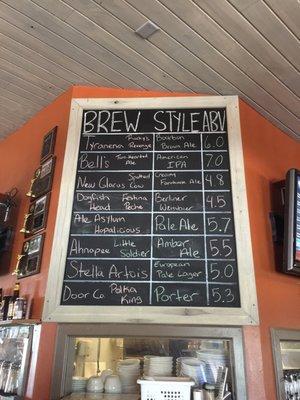 BREW STYLE ABV
Tyranena Rocky's Revenge Bourbon Brown Ale 6.0
Bell's Two-Hearted Ale American IPA 7.0
New Glarus Spotted Cow Creamy Farmhouse Ale 4.8
Dogfish Head Festina Pêche Berliner Weissbier 4.5
Ale Asylum Hopalicious Pale Ale 5.7
Ahnapee Little Soldier Amber Ale 5.5
Stella Artois European Pale Lager 5.0
Door Co. Polka King Porter 5.3